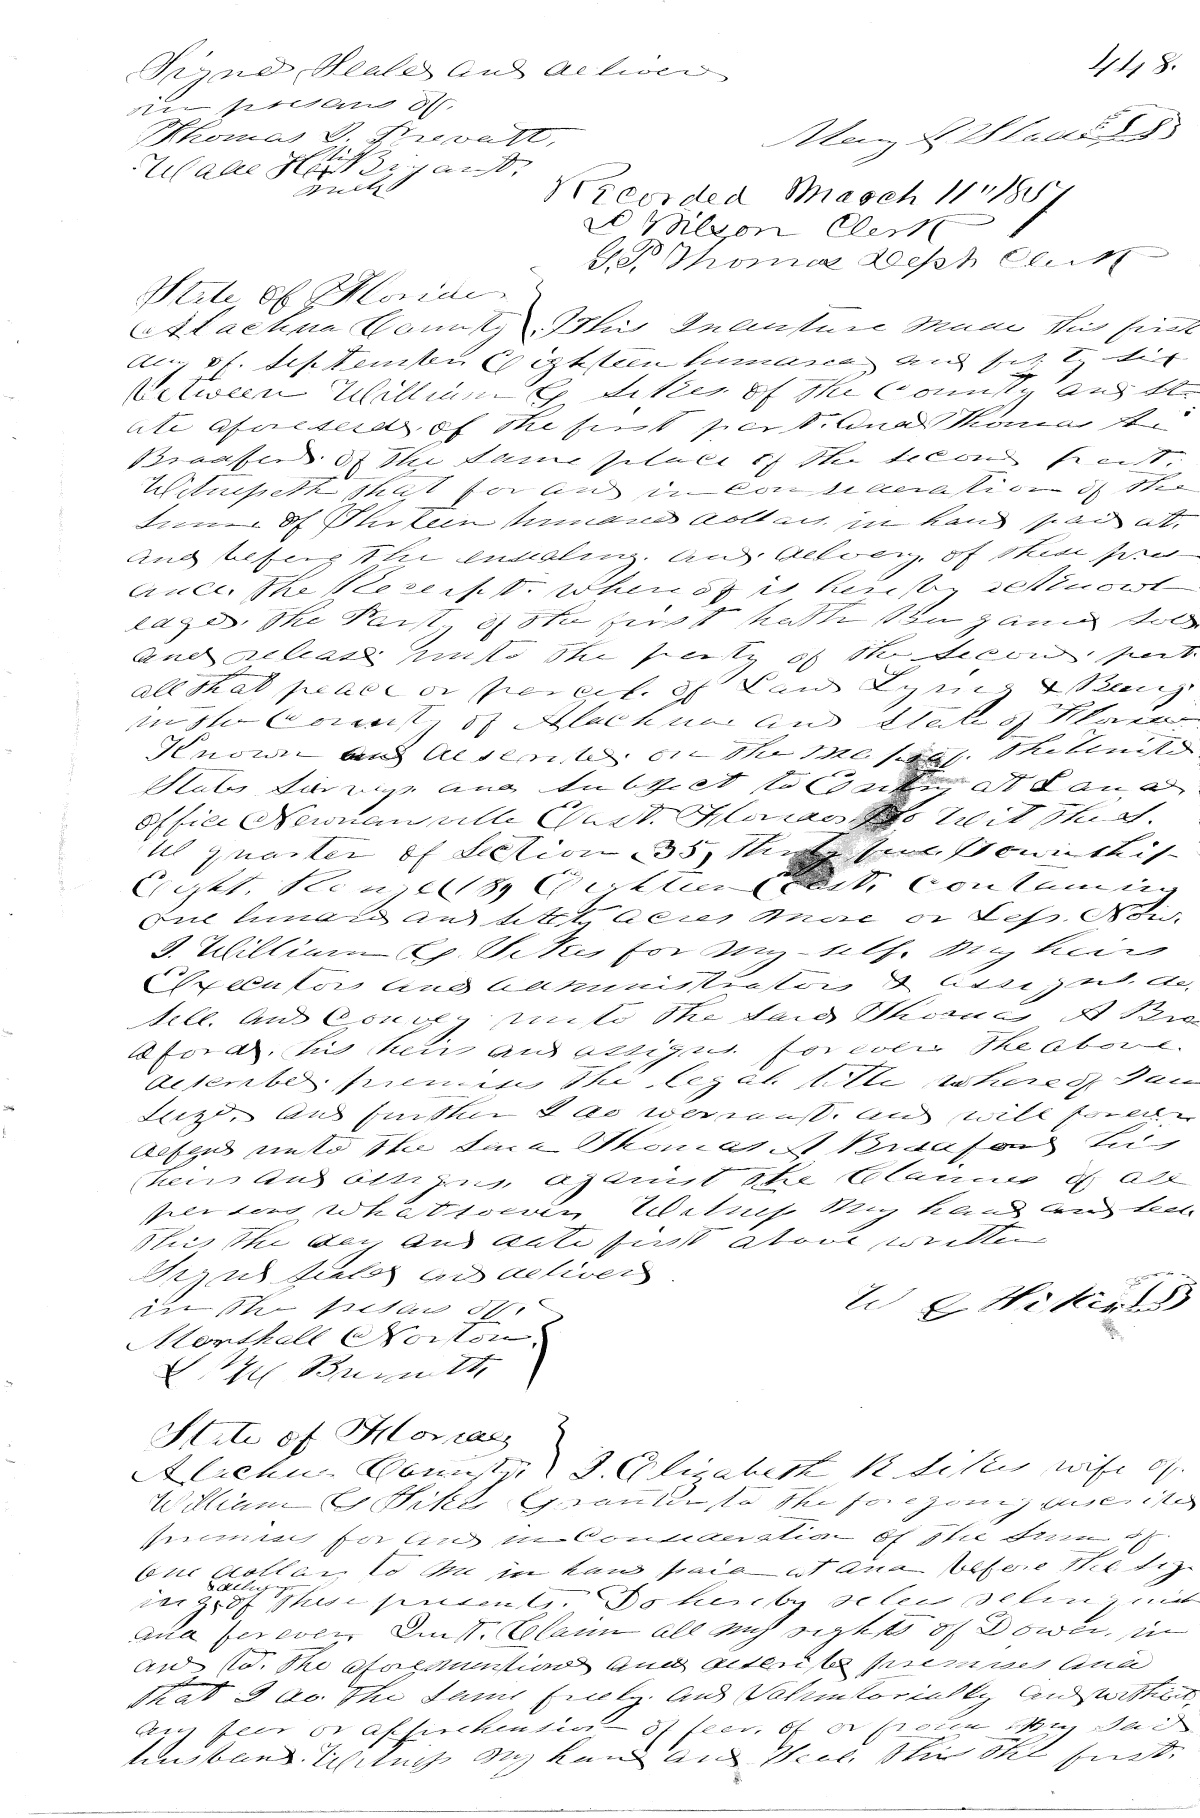 Signed Sealed and deliver 448.
in presans off.
Thomas J. Prevatt. Mary S Slade LS
Wade H his x Bryant. mark
Recorded March 11" 1857
L Wilson Clerk
G. P. Thomas Depty Clerk
State of Florida
Alachua County. This Indenture made this first
day of. September Eighteen hundred and fifty six
between William G Sikes of the County and St-
ate aforesaid, of the first part. And Thomas A
Bradford. of the same place of the second part.
Witnesseth that for and in consideration of the
Sume of Thirteen hundred dollars in hand paid at.
and before the ensealing. and delivery. of these pres
ance. the Receipt. where of is hereby acknowl
edged. the Party of the first hath Bargained sold
and release unto the party of the Second. part
all that peace or parcel. of Land Lying & Being
in the County of Alachua and State of Florida
Known and described. on the map of. the United
States Surveys and Subject to Entry at Land
office Newnansville East. Florida to Wit the S.
W quarter of Section 35, thirty five Township
Eight. Range (18) Eighteen East. Containing
one hundred and sixty acres more or Less. Now.
I. William G. Sikes for my-self. my heirs
Executors and administrators & assigns. do.
sell. and convey unto the said Thomas A Bra
dford. his heirs and assigns. forever the above.
described. premises the legal. title whereof I am
Seized and further I do warrant. and will forever
defend unto the Said Thomas A Bradford his
heirs and assigns. against the Claimes of all
persons whatsoever, Witness my hand and seal
this the day and date first above written
Signed sealed and delivered
in the presans off. W G Sikes LS
Marshall Norton.
L. W Burnett
State of Florida
Alachua County. I. Elizabeth R Sikes wife of.
William G Sikes Grantor to the foregoing described
premises for and in Consideration of the Sum of
one dollar to me in hand paid at and before the sig
ing & delivery of these presents. Do hereby release relinquish
and forever. Quit. Claim all my rights of Dower. in
and to. the aforementioned and described premises and
that I do. the same freely. and Voluntorially and without,
any fear or apprehension of fear. of or from my said
husband. Witness my hand and Seal. this the first.